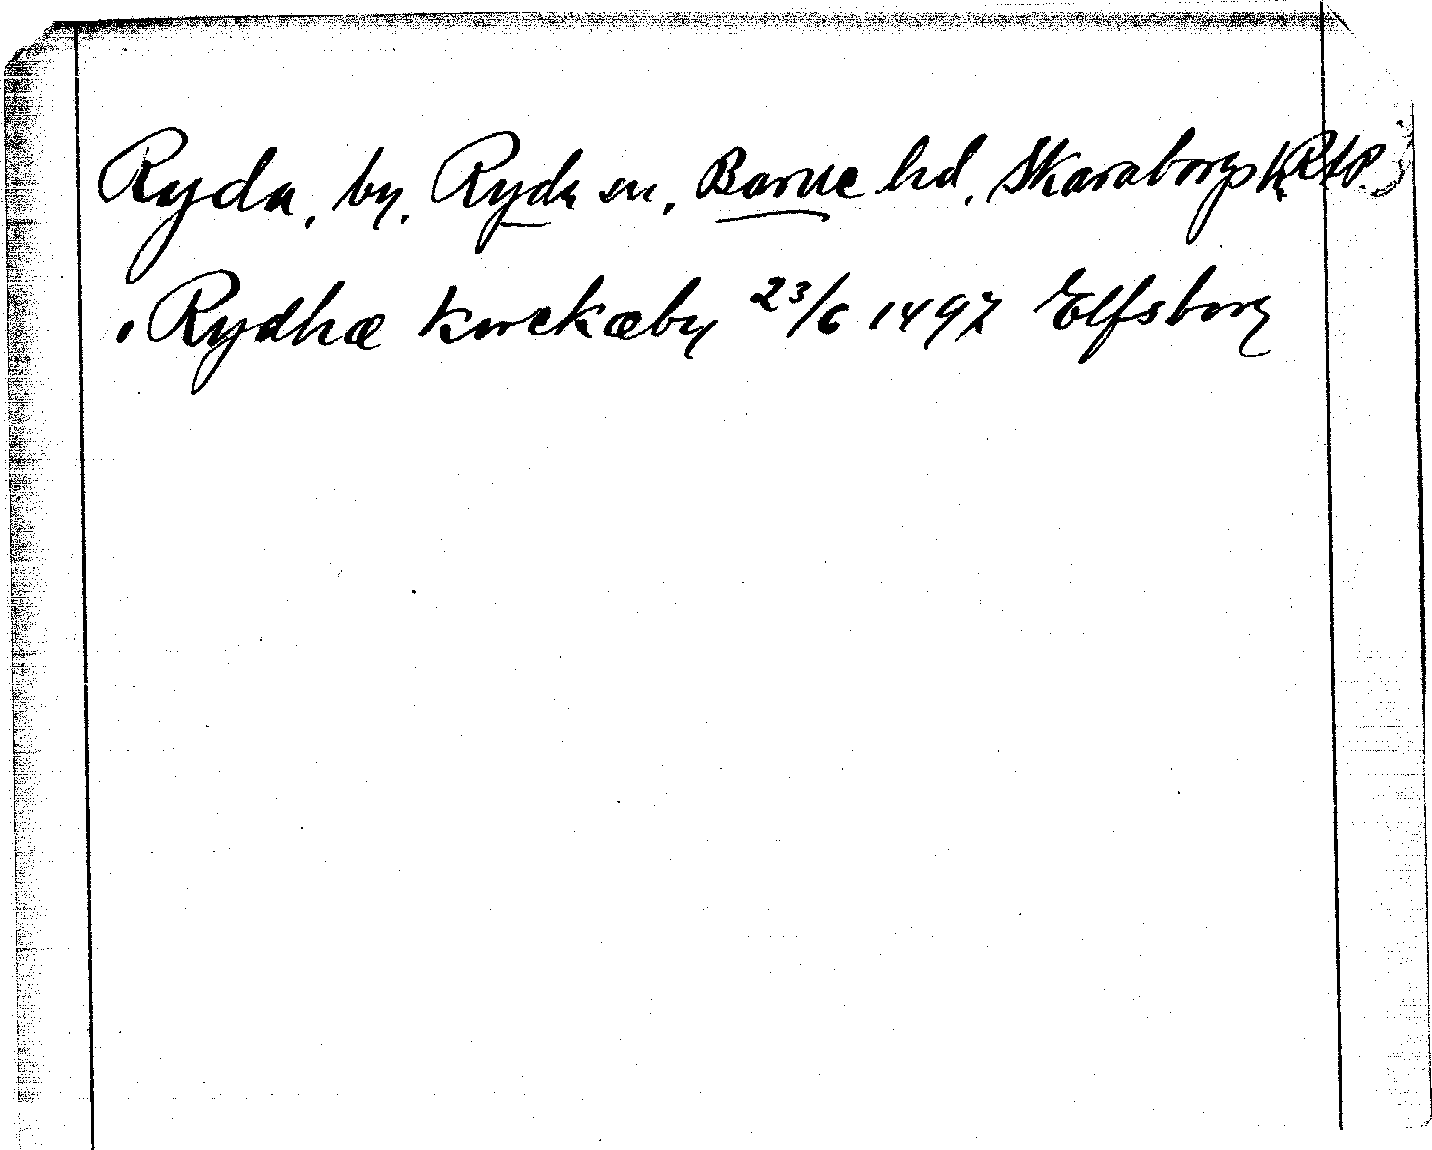 Ryda, by, Ryda sn, Barne hd, Skaraborgs l. RAp
i Rydhæ kirekæby 23/6 1497 Elfsborg